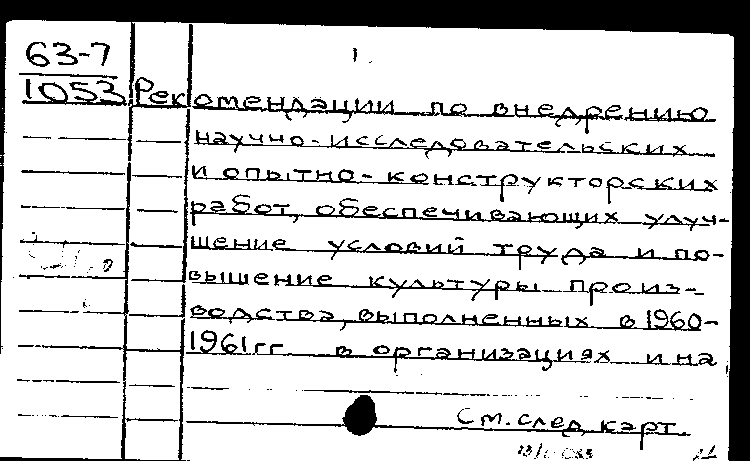 63-7
1053
1.
Рекомендации по внедрению
научно-исследовательских
и опытно-конструкторских
работ, обеспечивающих улуч-
шение условий труда и по-
вышение культуры произ-
водства, выполненных в 1960-
1961 гг в организациях и на
См. след. карт.